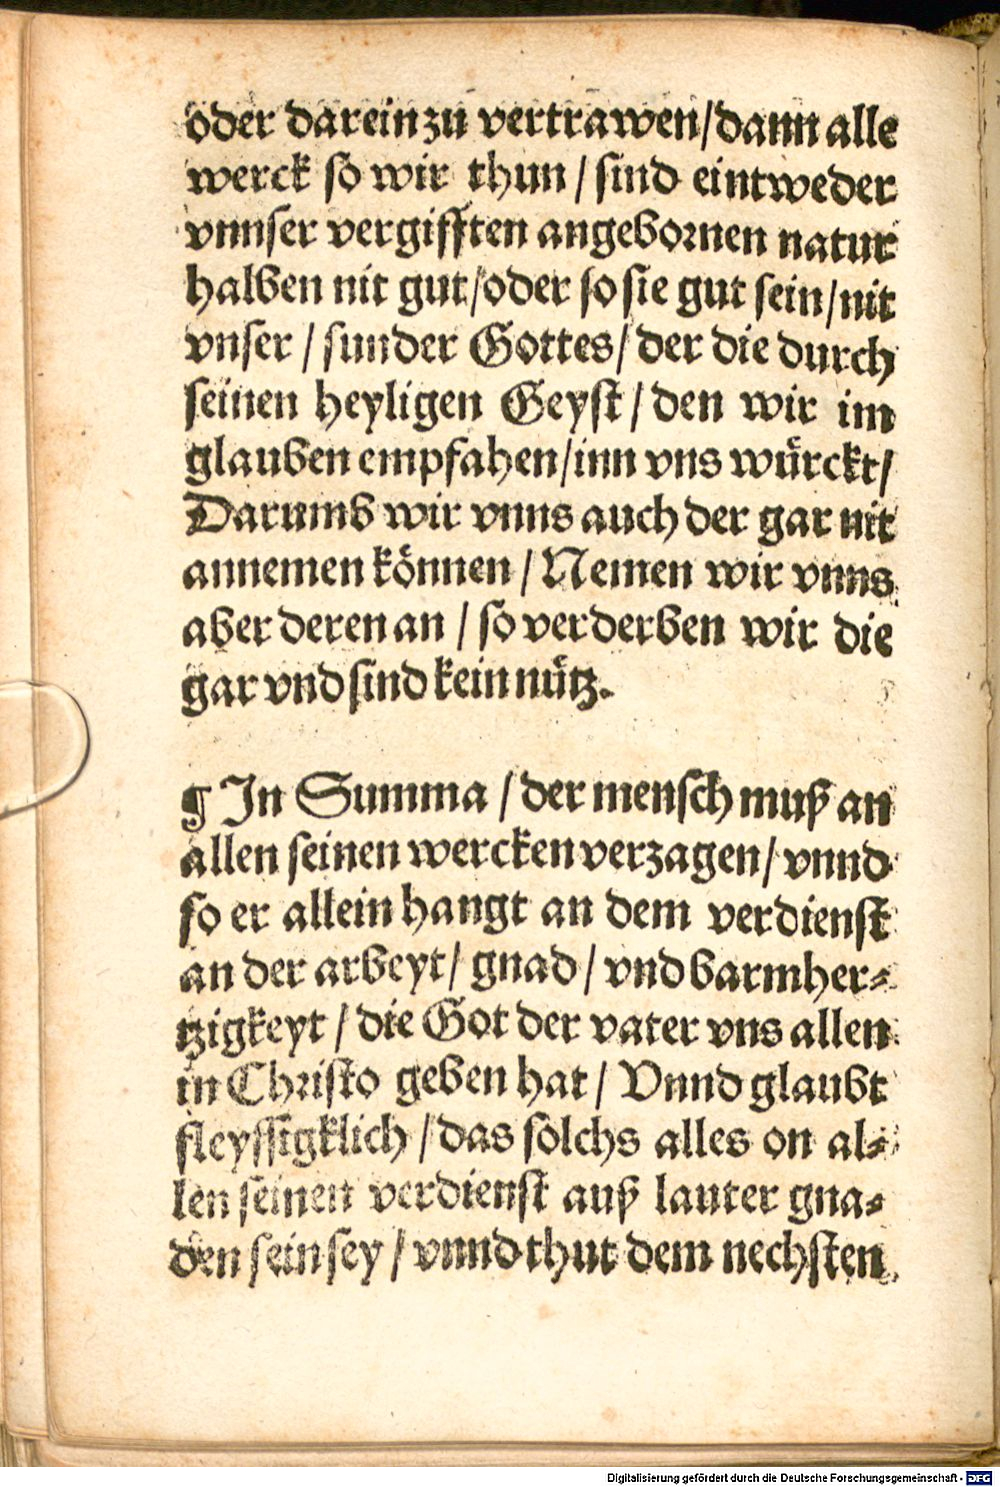 oder darein zu vertrawen/dann alle
werck so wir thun / sind eintweder
vnnser vergifften angebornen natur
halben nit gut/oder so sie gut sein/nit
vnser / sunder Gottes/ der die durch
seinen heyligen Geyst / den wir im
glauben empfahen/inn vns würckt/
Darumb wir vnns auch der gar nit
annemen können / Nemen wir vnns
aber deren an / so verderben wir die
gar vnd sind kein nütz.
¶ In Summa / der mensch muß an
allen seinen wercken verzagen/ vnnd
so er allein hangt an dem verdienst
an der arbeyt/ gnad / vnd barmher⸗
tzigkeyt / die Got der vater vns allen
in Christo geben hat / Vnnd glaubt
fleyssigklich / das solchs alles on al⸗
len seinen verdienst auß lauter gna⸗
den sein sey / vnnd thut dem nechsten
Digitalisierung gefördert durch die Deutsche Forschungsgemeinschaft - DFG